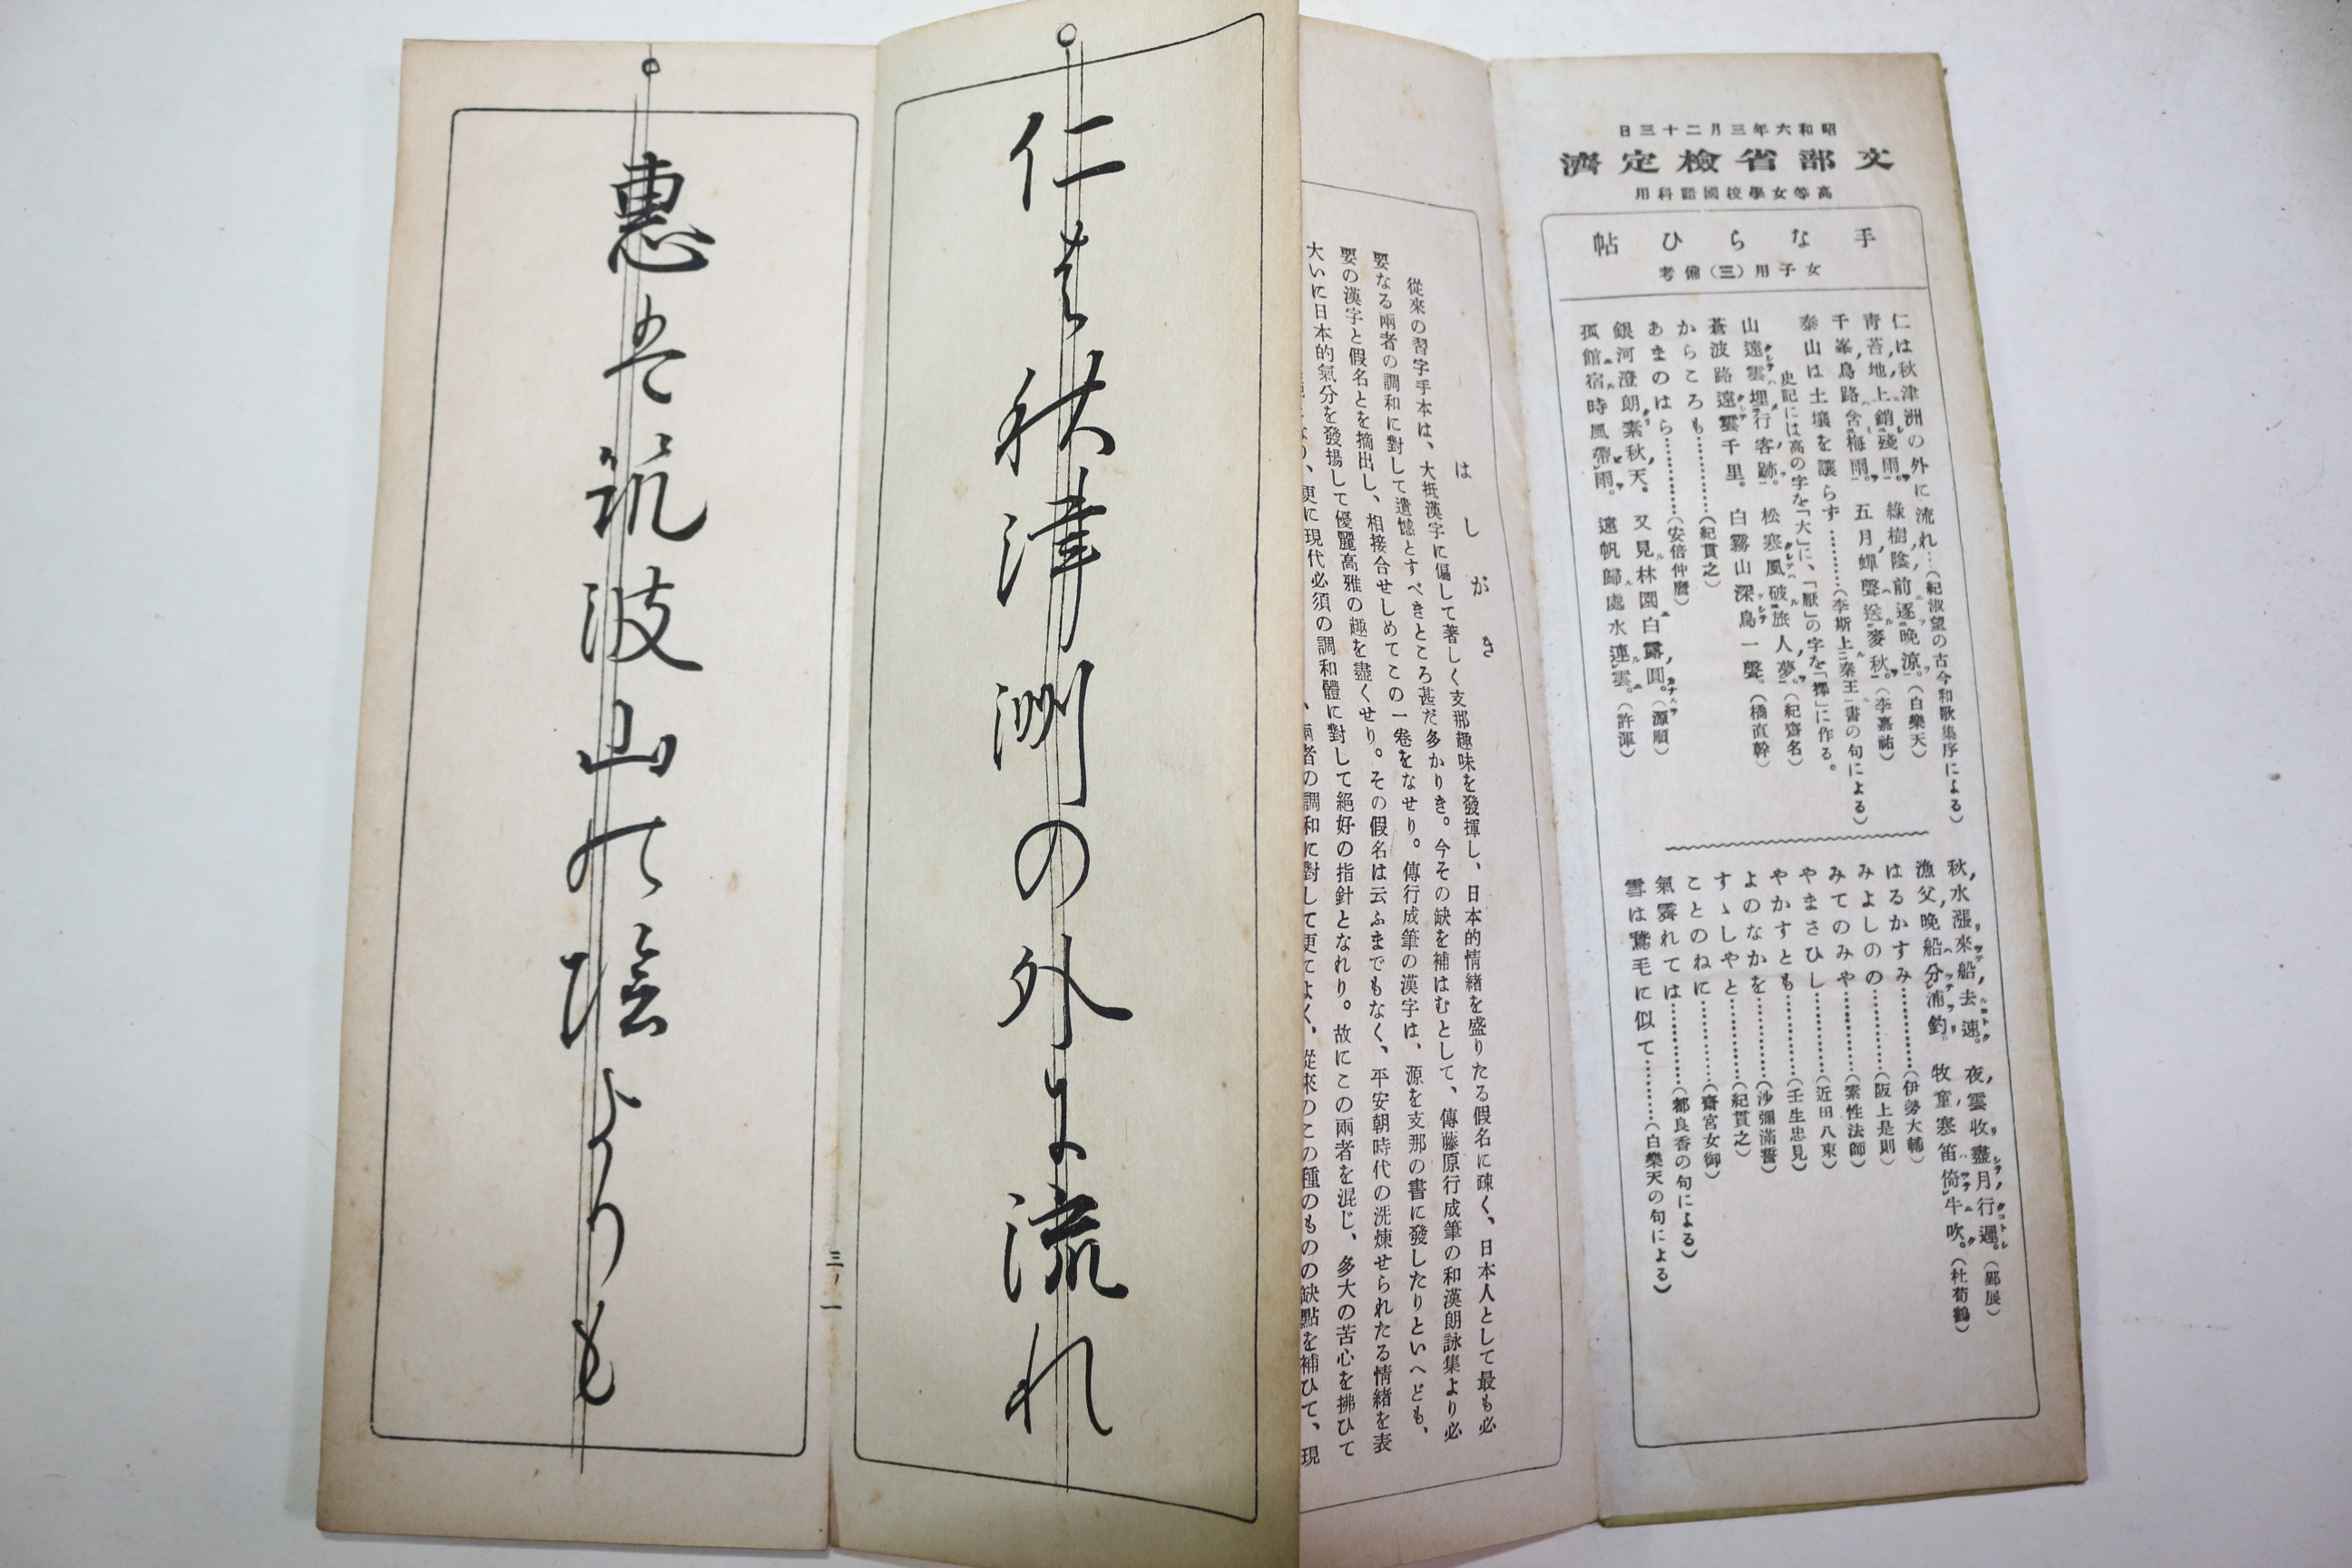 昭和六年三月二十三日
文部省檢定濟
高等女學校國語科用
手ならひ帖
女子用（三）備考
仁は秋津洲の外に流れ…（紀淑望の古今和歌集序による）
青苔地上銷殘雨。綠樹陰前逐晚涼。（白樂天）
千峯鳥路含梅雨。五月蟬聲送麥秋。（李嘉祐）
泰山は土壤を讓らず…………（李斯上秦王書の句による）
史記には高の字を「大」に、「厭」の字を「擇」に作る。
山遠雲埋行客跡。松寒風破旅人夢。（紀齋名）
蒼波路遠雲千里。白霧山深鳥一聲。（橘直幹）
からころも…………（紀貫之）
あまのはら…………（安倍仲麿）
銀河澄朗素秋天。又見林園白露圓。（源順）
孤館宿時風帶雨。遠帆歸處水連雲。（許渾）
秋水漲來船去速。夜雲收盡月行遲。（郢展）
漁父晚船分浦釣。牧童寒笛倚牛吹。（杜荀鶴）
はるかすみ…………（伊勢大輔）
みよしのの…………（阪上是則）
みてのみや…………（素性法師）
やまさひし…………（近田八束）
やかすとも…………（壬生忠見）
よのなかを…………（沙彌滿誓）
すゝしやと…………（紀貫之）
ことのねに…………（齋宮女御）
氣霽れては…………（都良香の句による）
雪は鵞毛に似て…………（白樂天の句による）
はしがき
從來の習字手本は、大抵漢字に偏して著しく支那趣味を發揮し、日本的情緒を盛りたる假名に疎く、日本人として最も必
要なる兩者の調和に對して遺憾とすべきところ甚だ多かりき。今その缺を補はむとして、傳藤原行成筆の和漢朗詠集より必
要の漢字と假名とを摘出し、相接合せしめてこの一卷をなせり。傳行成筆の漢字は、源を支那の書に發したりといへども、
大いに日本的氣分を發揚して優麗高雅の趣を盡くせり。その假名は云ふまでもなく、平安朝時代の洗煉せられたる情緒を表
更に現代必須の調和體に對して絕好の指針となれり。故にこの兩者を混じ、多大の苦心を拂ひて
兩者の調和に對して更によく、從來のこの種のものの缺點を補ひて、現
仁は秋津洲の外に流れ
三ノ一
惠は筑波山の陰よりも